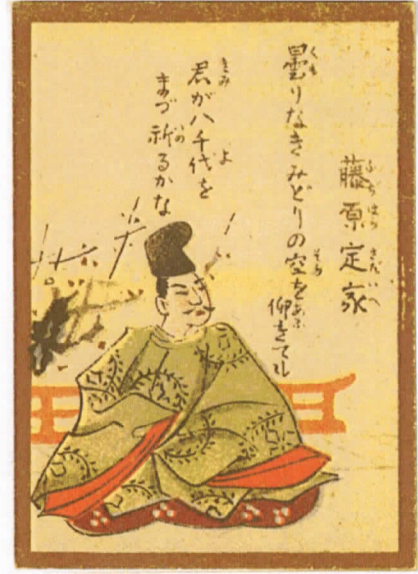 藤原定家
曇りなきみどりの空を
仰ぎても
君が八千代を
まづ祈るかな